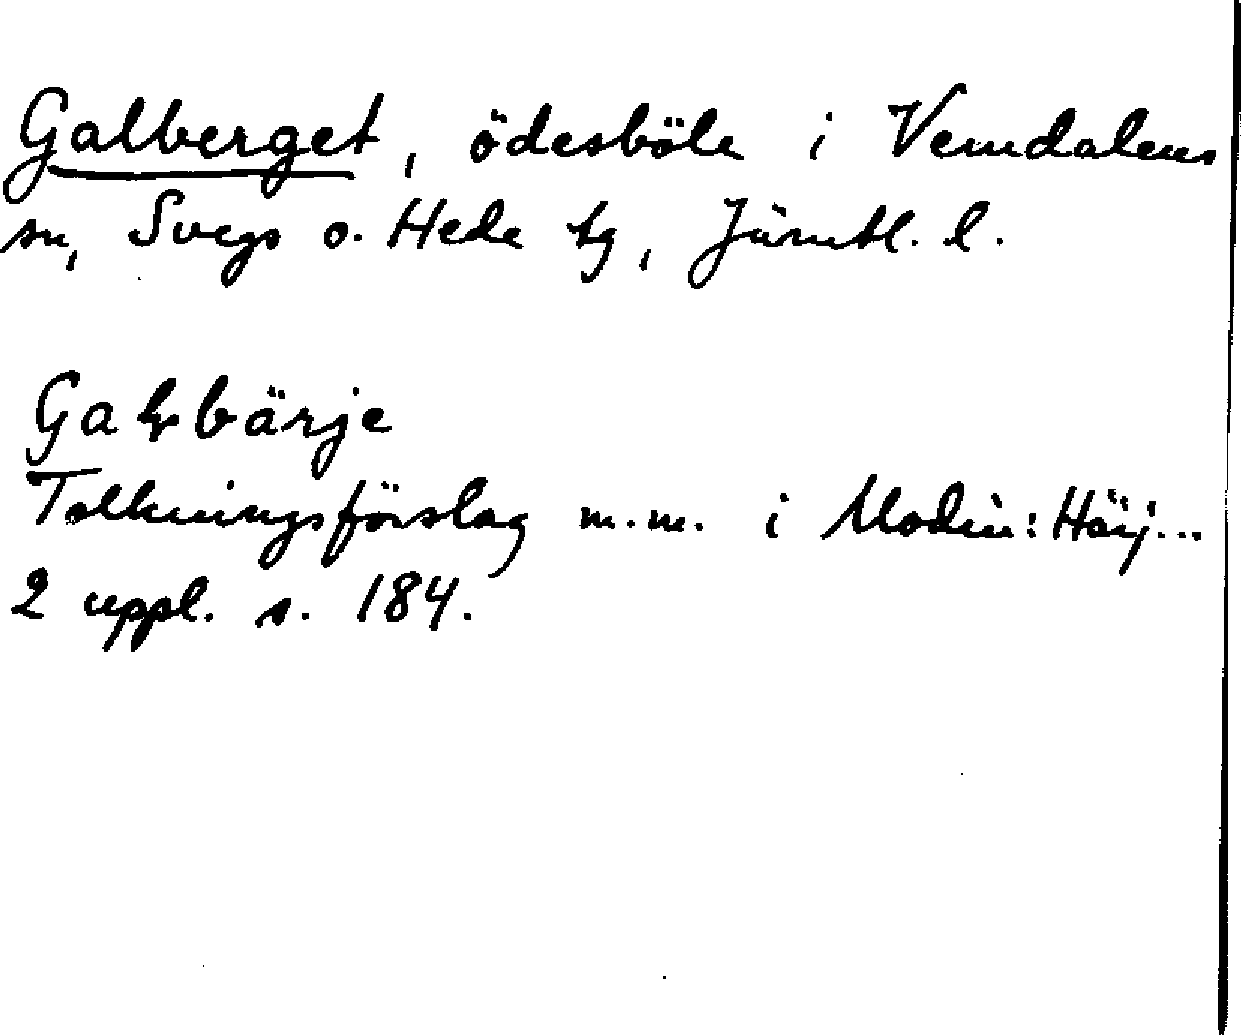 Galberget, ödesböle i Vemdalens
sn, Svegs o. Hede tg, Jämtl. l.
Tolkningsförslag m.m. i Modin: Härj...
2 uppl. s. 184.